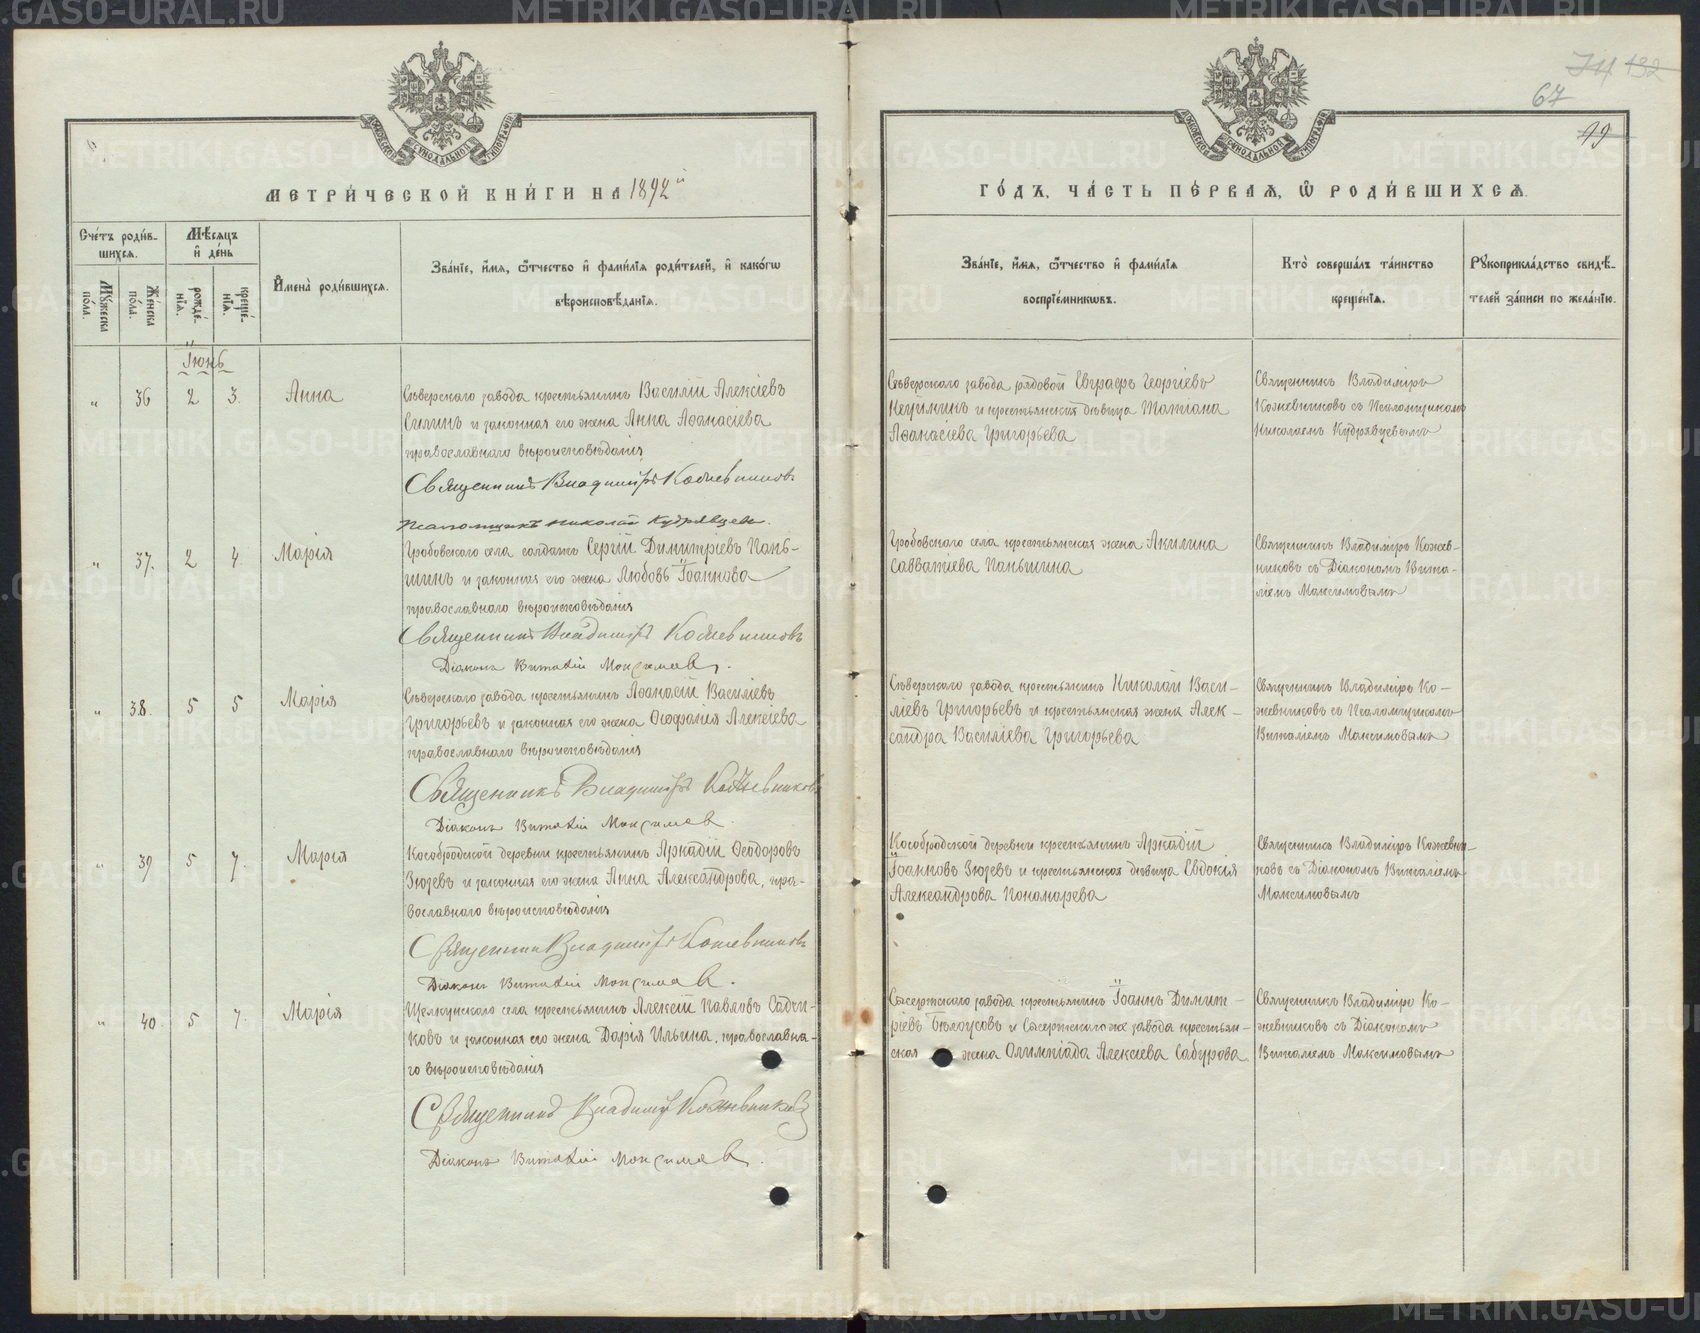 74 132
67
99
МЕТРИ́ЧЕСКОЙ КНИ́ГИ НА 1892й
ГО́ДЪ, ЧА́СТЬ ПЕ́РВАЯ, Ѿ РОДИ́ВШИХСЯ.
Сче́тъ роди́в-
шихся.
Мѣ́сяцъ
и҆ де́нь
Мꙋ́жеска по́ла.
Же́нска по́ла.
рожде́-
нїя.
креще́-
нїя.
И҆мена̀ роди́вшихся.
Зва́нїе, и҆́мя, ѻ҆́тчество и҆ фами́лїя роди́телей, и҆ како́гѡ
вѣроисповѣ́данїя.
Зва́нїе, и҆́мя, ѻ҆́тчество и҆ фами́лїя
воспрїе́мникѡвъ.
Кто̀ соверша́лъ та́инство
креще́нїя.
Рꙋкоприкла́дство свидѣ́-
телей за́писи по жела́нїю.
Іюнь
„ 36 2 3. Анна
Сѣверскаго завода крестьянинъ Василій Алексіевъ
Силинъ и законная его жена Анна Аѳанасіева
православнаго вѣроисповѣданія
Священникъ Владиміръ Кожевниковъ
Псаломщикъ Николай Кудрявцевъ.
Сѣверскаго завода рядовой Евграфъ Георгіевъ
Неуиминъ и крестьянская дѣвица Татіана
Аѳанасіева Григорьева
Священникъ Владиміръ
Кожевниковъ съ Псаломщикомъ
Николаемъ Кудрявцевымъ
„ 37. 2 4. Марія
Гробовскаго села солдатъ Сергій Димитріевъ Пань-
шинъ и законная его жена Любовь Іоаннова
православнаго вѣроисповѣданія
Священникъ Владиміръ Кожевниковъ
Діаконъ Виталій Максимовъ.
Гробовскаго села крестьянская жена Акилина
Савватіева Паньшина
Священникъ Владиміръ Кожев-
никовъ съ Діакономъ Вита-
ліемъ Максимовымъ
„ 38. 5 5 Марія
Сѣверскаго завода крестьянинъ Аѳанасій Василіевъ
Григорьевъ и законная его жена Ѳеофанія Алексіева
православнаго вѣроисповѣданія
Священникъ Владиміръ Кожевниковъ
Діаконъ Виталій Максимовъ.
Сѣверскаго завода крестьянинъ Николай Васи-
ліевъ Григорьевъ и крестьянская жена Алек-
сандра Василіева Григорьева
Священникъ Владиміръ Ко-
жевниковъ съ Псаломщикомъ
Виталіемъ Максимовымъ
„ 39 5 7. Марія
Кособродской деревни крестьянинъ Аркадій Ѳеодоровъ
Зюзевъ и законная его жена Анна Александрова, пра-
вославнаго вѣроисповѣданія
Священникъ Владиміръ Кожевниковъ
Діаконъ Виталій Максимовъ.
Кособродской деревни крестьянинъ Аркадій
Іоанновъ Зюзевъ и крестьянская дѣвица Евдокія
Александрова Пономарева
Священникъ Владиміръ Кожевни-
ковъ съ Діакономъ Виталіемъ
Максимовымъ
„ 40. 5 7. Марія
Щелкунскаго села крестьянинъ Алексій Павловъ Садчи-
ковъ и законная его жена Дарія Ильина, православна-
го вѣроисповѣданія
Священникъ Владиміръ Кожевниковъ
Діаконъ Виталій Максимовъ.
Сысертскаго завода крестьянинъ Іоаннъ Димит-
ріевъ Бѣлоусовъ и Сысертскаго же завода крестьян-
ская жена Олимпіада Алексіева Сабурова
Священникъ Владиміръ Ко-
жевниковъ съ Діакономъ
Виталіемъ Максимовымъ